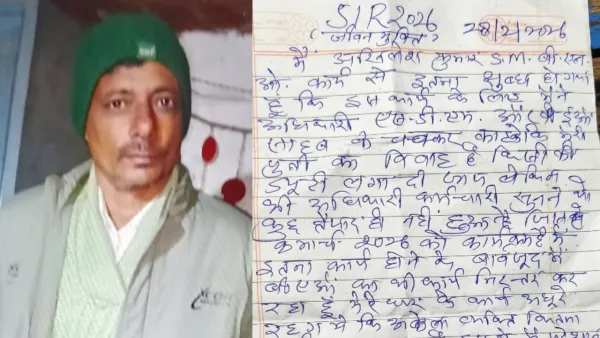 SIR 2026
(जीवन मुक्ति)
28/2/2026
मैं अखिलेश कुमार S.M. बी.एल.
ओ. कार्य से इतना क्षुब्ध हो गया
हूं कि इस कार्य के लिए मैंने
अधिकारी एस.डी.एम. और बीईओ
साहब के चक्कर काटे कि मेरी
पुत्री का विवाह है किसी की
ड्यूटी लगा दी जाय लेकिन
को अधिकारी कर्मचारी सुनने को
कुछ तैयार ही नहीं हुआ है
कमार्च 2026 को कार्यक्रम है मैं
इतना कार्य होने के बावजूद में
बीएलओ का भी कार्य निरन्तर कर
रहा हूं मेरे घर के कार्य अधूरे
रह गये कि अकेला व्यक्ति कितना